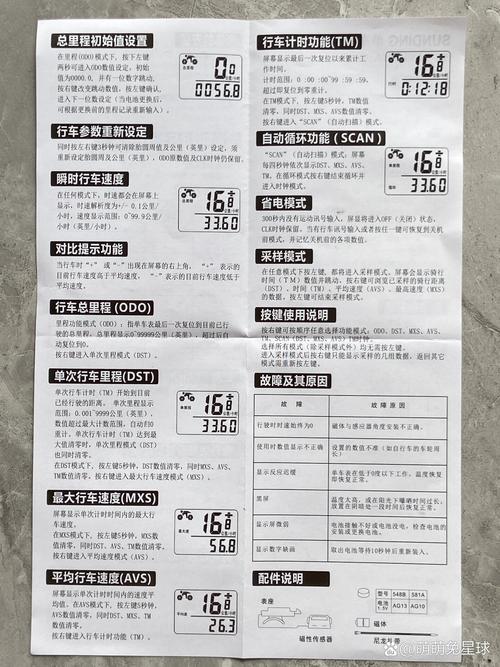 总里程初始值设置
在里程(ODO)模式下，按下左键
两秒可进入ODO数值设定，初始
值为0000.0，并有一位数字跳动，
按右键改变跳动数值，按左键确认，
进入下一位设定（当电池更换后，
可根据更换前的里程记录重新输入）。
总里程
0.0
公里/小时
0056.8
行车参数重新设定
同时按左右键3秒可清除胎圆周及公里（英里）设定，须
重新设定胎圆周及公里（英里），ODO原数值及CLK时钟仍保留。
瞬时行车速度
在任何模式下，时速都会在屏幕上
显示，时速解析度为+/- 0.1公里/
小时，速度显示范围：0~99.9公里
/小时（英里/小时）。
单里程
16.8
公里/小时
33.60
对比提示功能
当行车时“+” 或“-” 出现在屏幕的右上角， “+” 表示的
目前行车速度高于平均速度， “-”表示的目前行车速度低于
平均速度。
行车总里程 (ODO)
里程功能模式（ODO）：指单车表最后一次复位到目前已行
驶的总里程。总里程显示0~99999公里（英里），超过后自
动复位到0。
按右键进入单次里程模式（DST）。
单次行车里程(DST)
单次行车计时（TM）开始到目前
已经行驶的距离。 单次里程显示范
围：0.001~9999公里（英里）。
数值超过最大计数范围，自动归0
重计。单次行车计时（TM）达到最
大值清零时，单次里程模式（DST）
也同时清零。
在DST模式下，按左键5秒钟，DST数值清零，同时MXS、AVS、
TM数值清零，按右键进入最大行车速度模式（MXS）。
单里程
16.8
公里/小时
33.60
最大行车速度(MXS)
屏幕显示单次计时时间内的最大行
车速度。
在MXS模式下，按左键5秒钟，MXS数
值清零，同时DST、AVS、TM数值清零。
按右键进入平均速度模式（AVS）。
最大速
16.8
公里/小时
56.8
平均行车速度(AVS)
屏幕显示单次计时时间内的速度
平均值。在AVS模式下，按左键5秒钟，
AVS数值清零，同时DST、MXS、TM
数值清零。
按右键进入行车计时功能（TM）。
平均速
16.8
公里/小时
26.3
行车计时功能(TM)
屏幕显示最后一次复位以来累计工
作时间。
计时范围：0 :00 :00~99 :59 :59，
超过即复位到零重计。
在TM模式下，按左键5秒钟，TM数值
清零，同时DST、MXS、AVS数值清零。
按右键进入“SCAN”（自动扫描）模式。
行时
16.8
公里/小时
0:12:18
自动循环功能 ( SCAN )
“SCAN”（自动扫描）模式：屏幕
每四秒钟依次显示DST、MXS、AVS、
TM，在循环模式按右键结束循环并
进入时钟模式。
单里程
循环
16.8
公里/小时
33.60
省电模式
300秒内没有运动讯号输入，屏显将进入OFF（关闭）状态，
CLK时钟保留。当有行车讯号输入或者按任一键可恢复到关机
前模式，并记忆关机前的各项数值。
采样模式
在任意模式下按左键，都将进入采样模式。屏幕会显示骑行
时间（TM）数值并跳动，按右键可浏览已采样的骑行距离
(DST)、时间（TM)、平均速度（AVS）、最高速度（MXS）
的数据，按左键可结束采样。
按键使用说明
按右键可按顺序任意选择功能模式：ODO、DST、MXS、AVS、
TM、SCAN（DST、MXS、AVS、TM)TM时钟。
选择所有模式（除采样模式外）均无需按左键。
进入采样模式后按右键只能显示采样的几组数据，返回其它
模式需重新按左键。
故障及其原因
故 障 故 障 原 因
行驶时时速始终为0 磁体与感应器角度安装不正确。
使用时数值显示不正确 设置的数值不准（如自行车的车轮周长）
显示反应迟缓 单车表在低于0度以下工作。温度恢复
即恢复正常。
黑屏 温度太高，或在阳光下曝晒时间过长，
放置在阴暗处一段时间后恢复正常。
显示屏微弱 电池接触不好或电池没电，检查电池的
安装或更换电池。
显示数字缺画 取出电池等待10秒钟后重新装入。
配件说明
表座
磁性传感器
型号 548B 581A
电池
1.5V AG13 AG10
磁体
尼龙扎带
@萌萌兔星球